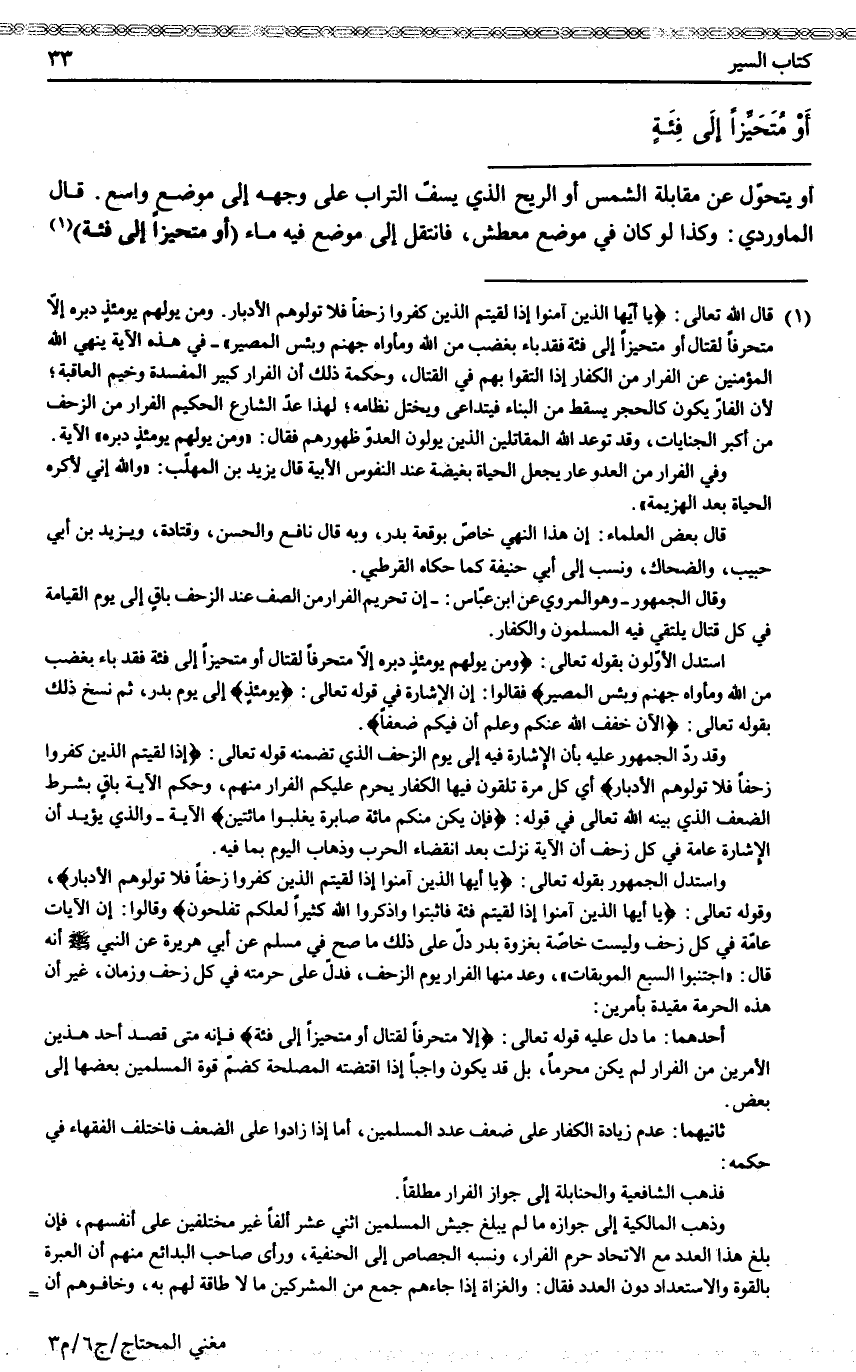 كتاب السير ٣٣
أَوْ مُتَحَيِّزاً إِلَى فِئَةٍ
أو يتحوّل عن مقابلة الشمس أو الريح الذي يسفّ التراب على وجهه إلى موضع واسع. قال
الماوردي: وكذا لو كان في موضع معطش، فانتقل إلى موضع فيه ماء (أو متحيزاً إلى فئة)(١)
(١) قال الله تعالى: ﴿يا أيّها الذين آمنوا إذا لقيتم الذين كفروا زحفاً فلا تولوهم الأدبار. ومن يولهم يومئذٍ دبره إلّا
متحرفاً لقتال أو متحيزاً إلى فئة فقد باء بغضب من الله ومأواه جهنم وبئس المصير﴾ ـ في هذه الآية ينهي الله
المؤمنين عن الفرار من الكفار إذا التقوا بهم في القتال، وحكمة ذلك أن الفرار كبير المفسدة وخيم العاقبة؛
لأن الفارّ يكون كالحجر يسقط من البناء فيتداعى ويختل نظامه؛ لهذا عدّ الشارع الحكيم الفرار من الزحف
من أكبر الجنايات، وقد توعد الله المقاتلين الذين يولون العدوّ ظهورهم فقال: «ومن يولهم يومئذٍ دبره» الآية.
وفي الفرار من العدو عار يجعل الحياة بغيضة عند النفوس الأبية قال يزيد بن المهلّب: «والله إني لأكره
الحياة بعد الهزيمة».
قال بعض العلماء: إن هذا النهي خاصّ بوقعة بدر، وبه قال نافع والحسن، وقتادة، ويزيد بن أبي
حبيب، والضحاك، ونسب إلى أبي حنيفة كما حكاه القرطبي.
وقال الجمهور ـ وهو المروي عن ابن عبّاس: ـ إن تحريم الفرار من الصف عند الزحف باقٍ إلى يوم القيامة
في كل قتال يلتقي فيه المسلمون والكفار.
استدل الأوّلون بقوله تعالى: ﴿ومن يولهم يومئذٍ دبره إلّا متحرفاً لقتال أو متحيزاً إلى فئة فقد باء بغضب
من الله ومأواه جهنم وبئس المصير﴾ فقالوا: إن الإشارة في قوله تعالى: ﴿يومئذٍ﴾ إلى يوم بدر، ثم نسخ ذلك
بقوله تعالى: ﴿الآن خفف الله عنكم وعلم أن فيكم ضعفاً﴾.
وقد ردّ الجمهور عليه بأن الإشارة فيه إلى يوم الزحف الذي تضمنه قوله تعالى: ﴿إذا لقيتم الذين كفروا
زحفاً فلا تولوهم الأدبار﴾ أي كل مرة تلقون فيها الكفار يحرم عليكم الفرار منهم، وحكم الآية باقٍ بشرط
الضعف الذي بينه الله تعالى في قوله: ﴿فإن يكن منكم مائة صابرة يغلبوا مائتين﴾ الآية ـ والذي يؤيد أن
الإشارة عامة في كل زحف أن الآية نزلت بعد انقضاء الحرب وذهاب اليوم بما فيه.
واستدل الجمهور بقوله تعالى: ﴿يا أيها الذين آمنوا إذا لقيتم الذين كفروا زحفاً فلا تولوهم الأدبار﴾،
وقوله تعالى: ﴿يا أيها الذين آمنوا إذا لقيتم فئة فاثبتوا واذكروا الله كثيراً لعلكم تفلحون﴾ وقالوا: إن الآيات
عامّة في كل زحف وليست خاصّة بغزوة بدر دلّ على ذلك ما صح في مسلم عن أبي هريرة عن النبي ﷺ أنه
قال: «اجتنبوا السبع الموبقات»، وعد منها الفرار يوم الزحف، فدلّ على حرمته في كل زحف وزمان، غير أن
هذه الحرمة مقيدة بأمرين:
أحدهما: ما دل عليه قوله تعالى: ﴿إلا متحرفاً لقتال أو متحيزاً إلى فئة﴾ فإنه متى قصد أحد هذين
الأمرين من الفرار لم يكن محرماً، بل قد يكون واجباً إذا اقتضته المصلحة كضمّ قوة المسلمين بعضها إلى
بعض.
ثانيهما: عدم زيادة الكفار على ضعف عدد المسلمين، أما إذا زادوا على الضعف فاختلف الفقهاء في
حكمه:
فذهب الشافعية والحنابلة إلى جواز الفرار مطلقاً.
وذهب المالكية إلى جوازه ما لم يبلغ جيش المسلمين اثني عشر ألفاً غير مختلفين على أنفسهم، فإن
بلغ هذا العدد مع الاتحاد حرم الفرار، ونسبه الجصاص إلى الحنفية، ورأى صاحب البدائع منهم أن العبرة
بالقوة والاستعداد دون العدد فقال: والغزاة إذا جاءهم جمع من المشركين ما لا طاقة لهم به، وخافوهم أن =
مغني المحتاج/ج٦/م٣